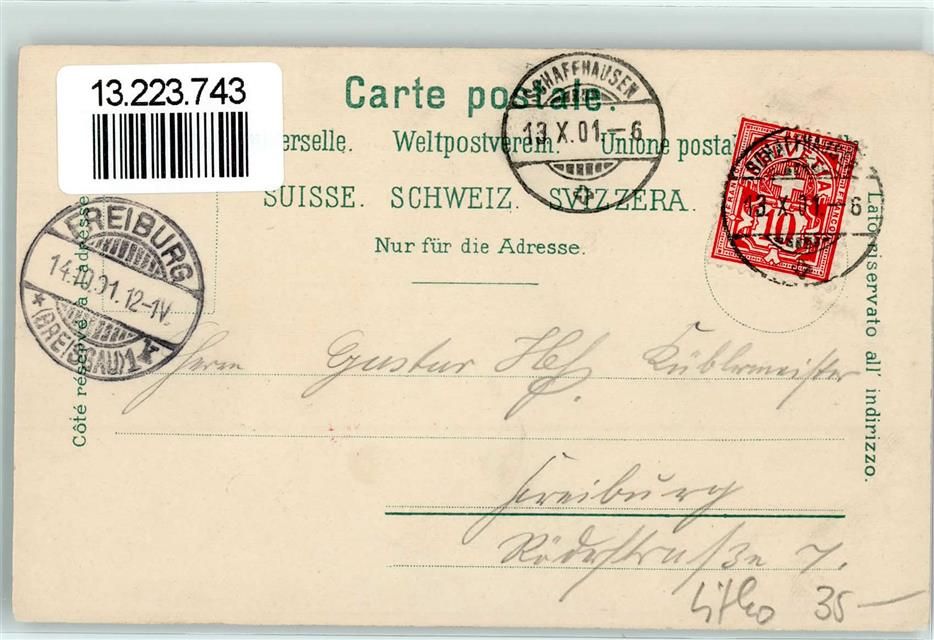 13.223.743
Carte postale.
erselle. Weltpostverein. Unione posta
SUISSE. SCHWEIZ. SVIZZERA.
Nur für die Adresse.
SCHAFFHAUSEN
13.X.01-6
13.X.01-6
10
FREIBURG
14.10.01.12-1V.
*(BREISGAU)1*
Côté réservé à adresse
Lato riservato all' indirizzo.
Herrn Gustav Küblermeister
Freiburg
Röderstraße 7.
Litho 35—